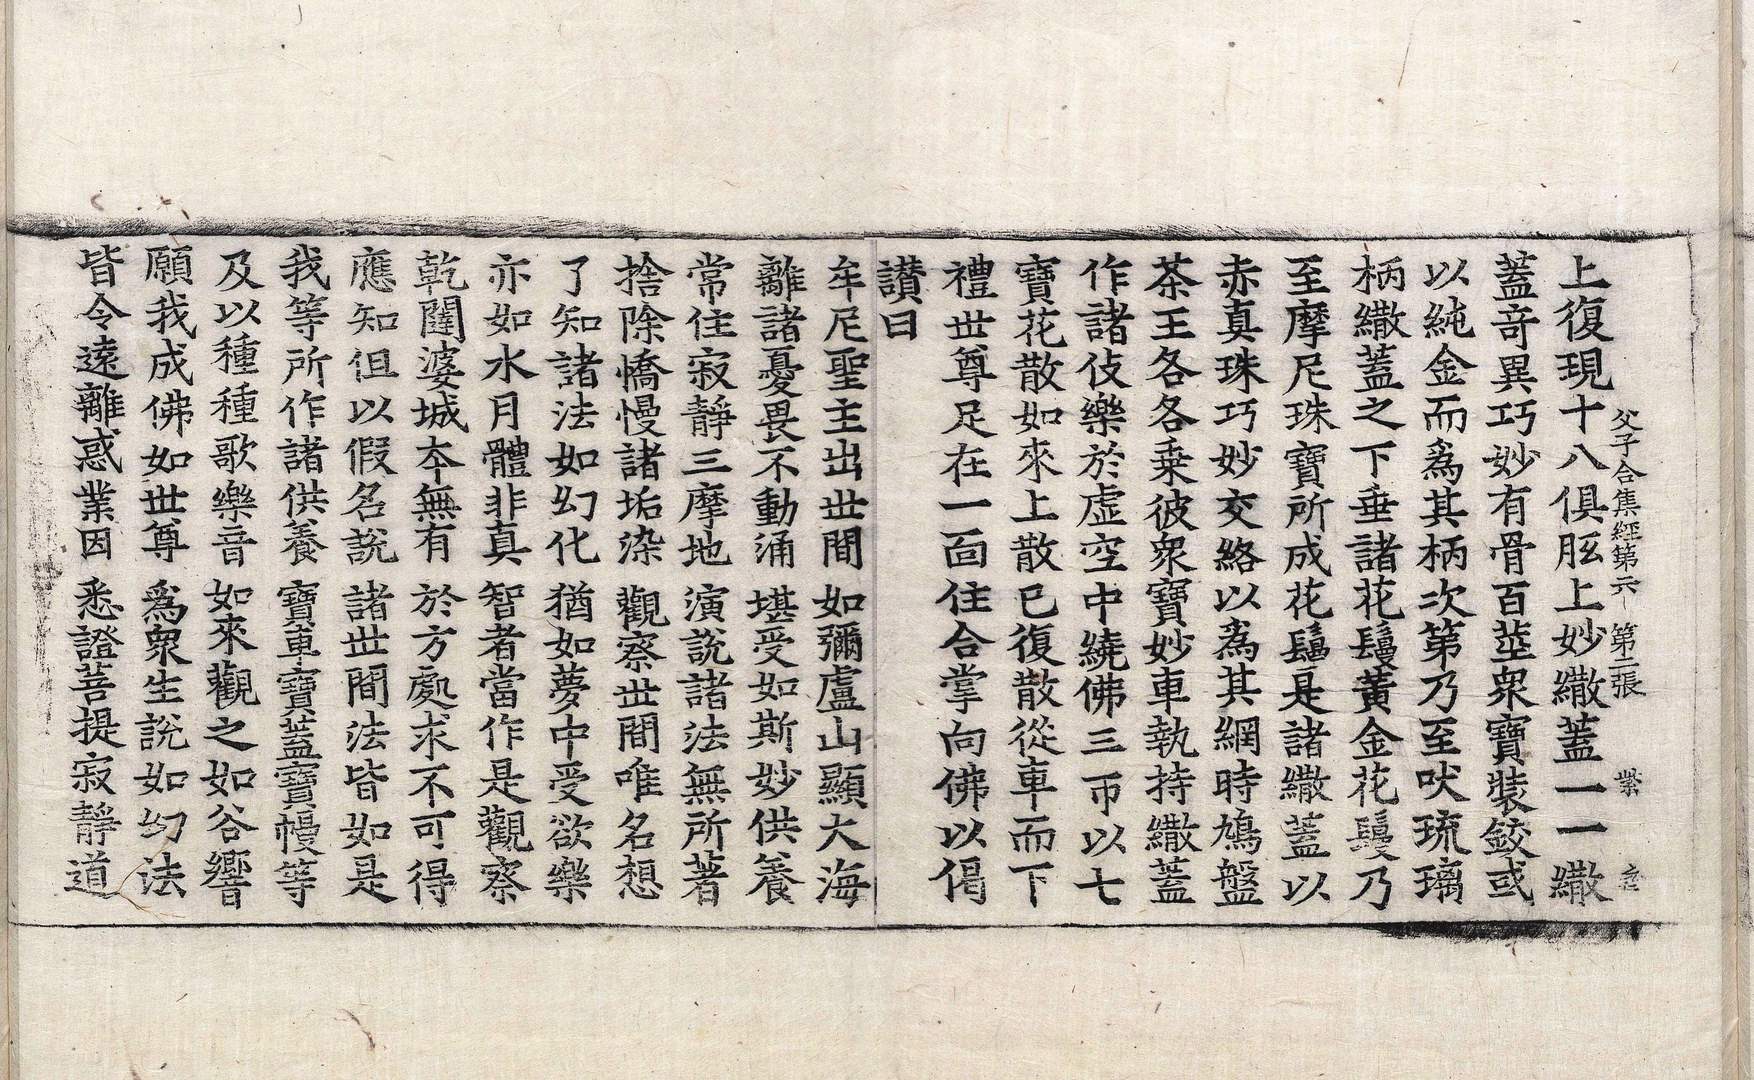 父子合集經第六 第二張 紫
上復現十八俱胝上妙繖蓋一一繖
蓋竒異巧妙有骨百莖衆寶裝鉸或
以純金而爲其柄次第乃至吠琉璃
柄繖蓋之下垂諸花鬘黃金花鬘乃
至摩尼珠寶所成花鬘是諸繖蓋以
赤真珠巧妙交絡以爲其網時鳩盤
茶王各各乗彼衆寶妙車執持繖蓋
作諸伎樂於虛空中繞佛三帀以七
寶花散如來上散已復散從車而下
禮世尊足在一面住合掌向佛以偈
讃曰
牟尼聖主出世間 如彌盧山顯大海
離諸憂畏不動涌 堪受如斯妙供養
常住寂靜三摩地 演說諸法無所著
捨除憍慢諸垢染 觀察世間唯名想
了知諸法如幻化 猶如夢中受欲樂
亦如水月體非真 智者當作是觀察
乾闥婆城夲無有 於方處求不可得
應知但以假名說 諸世間法皆如是
我等所作諸供養 寶車寶蓋寶幔等
及以種種歌樂音 如來觀之如谷響
願我成佛如世尊 爲衆生說如幻法
皆令遠離惑業因 悉證菩提寂靜道